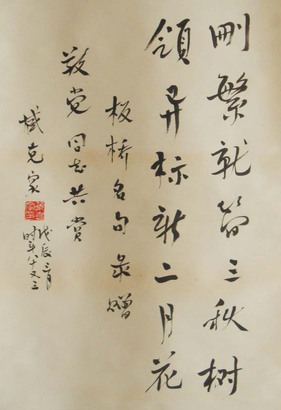 删繁就简三秋树
领异标新二月花
板桥名句录赠
党同志共赏
臧克家
戊辰三月
时年八十又三